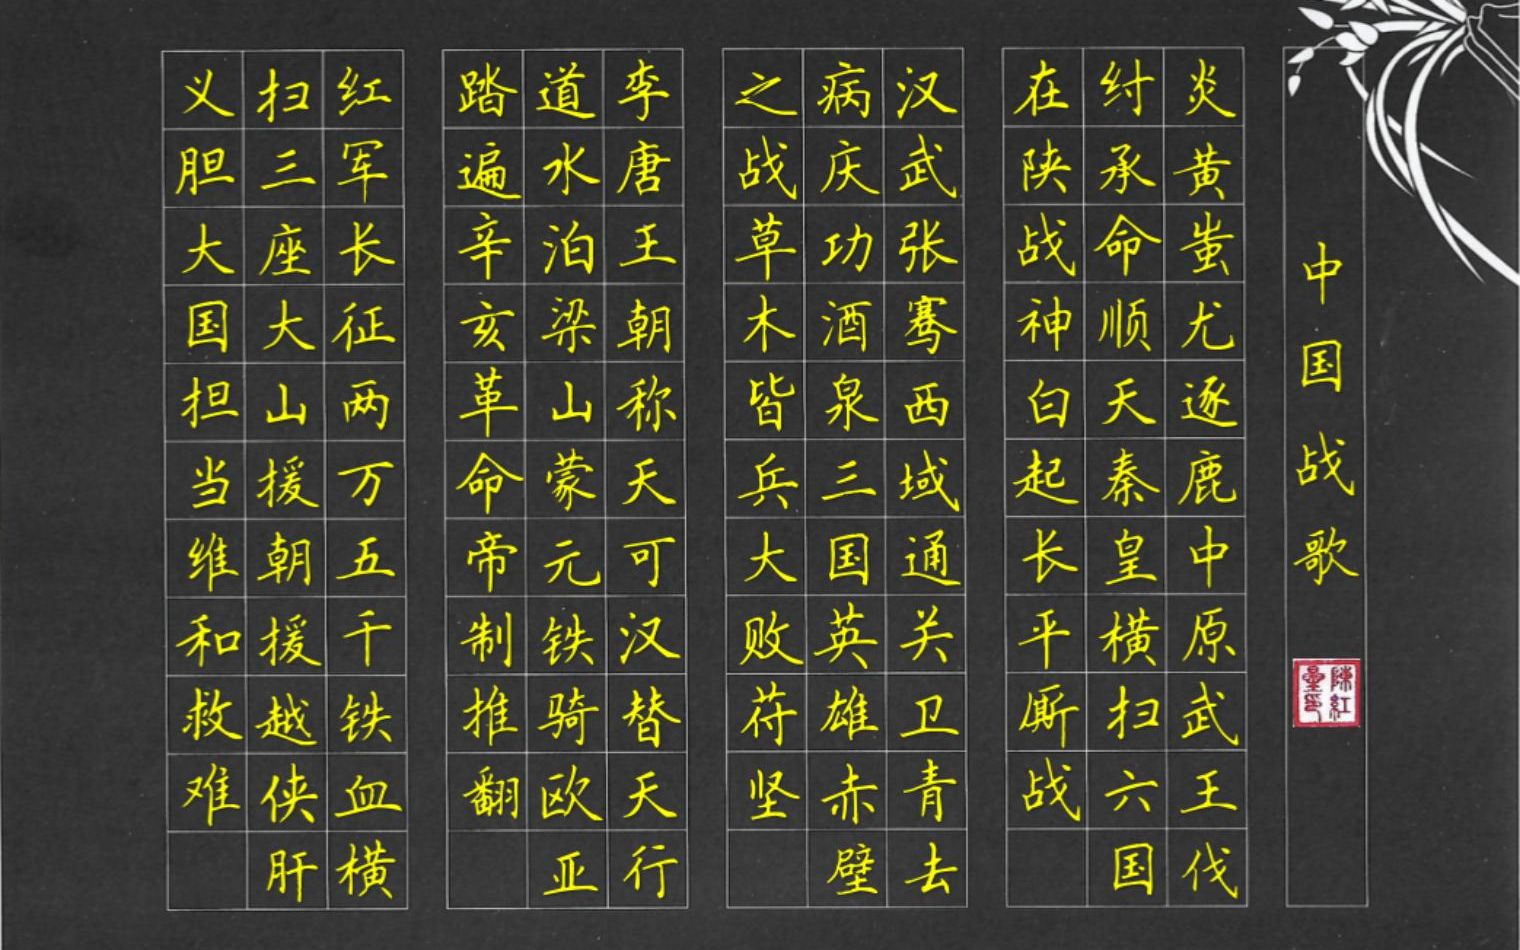 中国战歌
陳紅
炎黄蚩尤逐鹿中原武王伐
纣承命顺天秦皇横扫六国
在陕战神白起长平厮战
汉武张骞西域通关卫青去
病庆功酒泉三国英雄赤壁
之战草木皆兵大败苻坚
李唐王朝称天可汗替天行
道水泊梁山蒙元铁骑欧亚
踏遍辛亥革命帝制推翻
红军长征两万五千铁血横
扫三座大山援朝援越侠肝
义胆大国担当维和救难